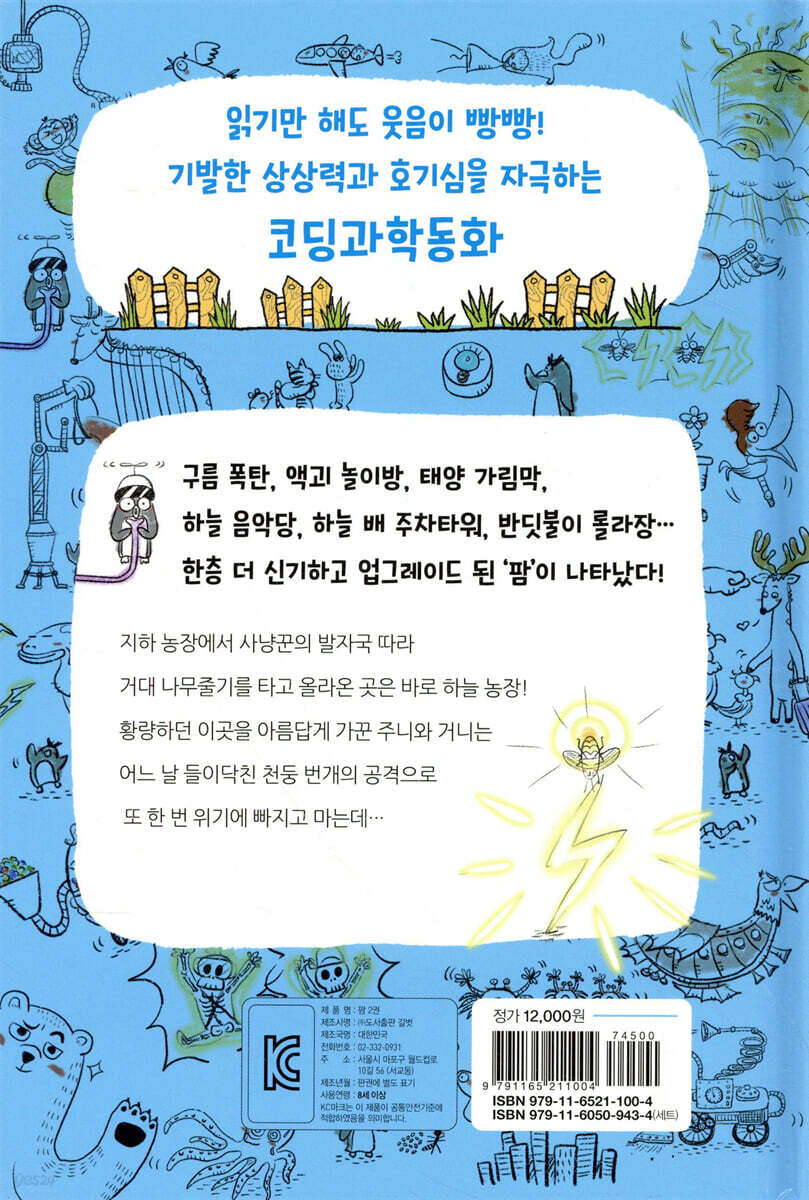 읽기만 해도 웃음이 빵빵!
기발한 상상력과 호기심을 자극하는
코딩과학동화
구름 폭탄, 액괴 놀이방, 태양 가림막,
하늘 음악당, 하늘 배 주차타워, 반딧불이 롤라장…
한층 더 신기하고 업그레이드 된 ‘팜’이 나타났다!
지하 농장에서 사냥꾼의 발자국 따라
거대 나무줄기를 타고 올라온 곳은 바로 하늘 농장!
황량하던 이곳을 아름답게 가꾼 주니와 거니는
어느 날 들이닥친 천둥 번개의 공격으로
또 한 번 위기에 빠지고 마는데…
KC
제 품 명 : 팜 2권
제조사명 : ㈜도서출판 길벗
제조국명 : 대한민국
전화번호 : 02-332-0931
주 소 : 서울시 마포구 월드컵로
10길 56 (서교동)
제조년월 : 판권에 별도 표기
사용연령 : 8세 이상
KC마크는 이 제품이 공통안전기준에
적합하였음을 의미합니다.
정가 12,000원
74500
9 791165 211004
ISBN 979-11-6521-100-4
ISBN 979-11-6050-943-4(세트)
yes24